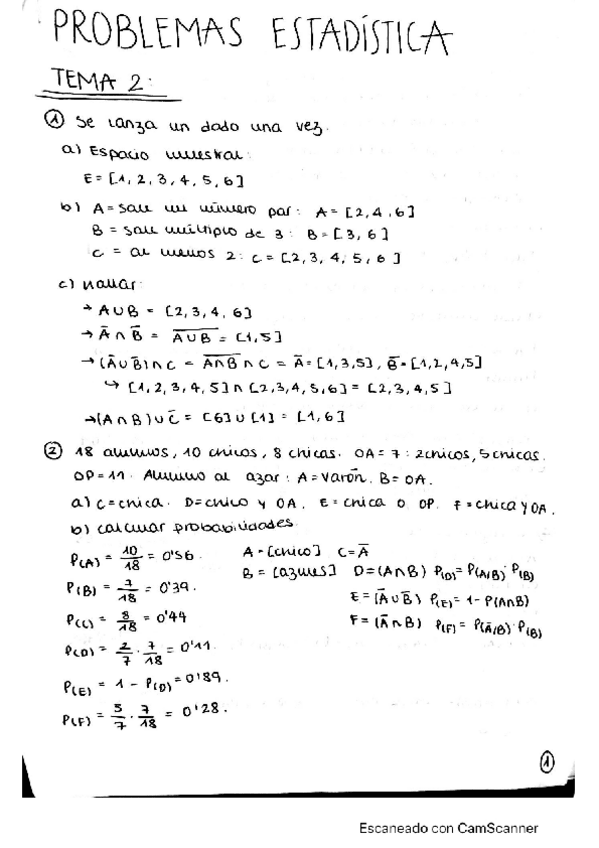 PROBLEMAS ESTADÍSTICA
TEMA 2:
① Se lanza un dado una vez.
a) Espacio muestral:
E = [1, 2, 3, 4, 5, 6]
b) A = sale un número par: A = [2, 4, 6]
B = sale múltiplo de 3: B = [3, 6]
C = al menos 2: C = [2, 3, 4, 5, 6]
c) Hallar:
→ A∪B = [2, 3, 4, 6]
→ A̅ ∩ B̅ = \overline{A∪B} = [1, 5]
→ (A̅∪B̅)∩C = \overline{A∩B} ∩ C = A̅ = [1, 3, 5], B̅ = [1, 2, 4, 5]
↳ [1, 2, 3, 4, 5] ∩ [2, 3, 4, 5, 6] = [2, 3, 4, 5]
→ (A∩B)∪C̅ = [6] ∪ [1] = [1, 6]
② 18 alumnos, 10 chicos, 8 chicas. OA = 7: 2 chicos, 5 chicas.
OP = 11. Alumno al azar: A = varón. B = OA.
a) C = chica. D = chico y OA. E = chica o OP. F = chica y OA.
b) calcular probabilidades.
P(A) = 10/18 = 0'56. A = [chico] C = A̅
P(B) = 7/18 = 0'39. B = [azules] D = (A∩B) P(D) = P(A/B) · P(B)
P(C) = 8/18 = 0'44 E = (A̅∪B̅) P(E) = 1 - P(A∩B)
P(D) = 2/7 · 7/18 = 0'11. F = (A̅∩B) P(F) = P(A̅/B) · P(B)
P(E) = 1 - P(D) = 0'89.
P(F) = 5/7 · 7/18 = 0'28.
①
Escaneado con CamScanner